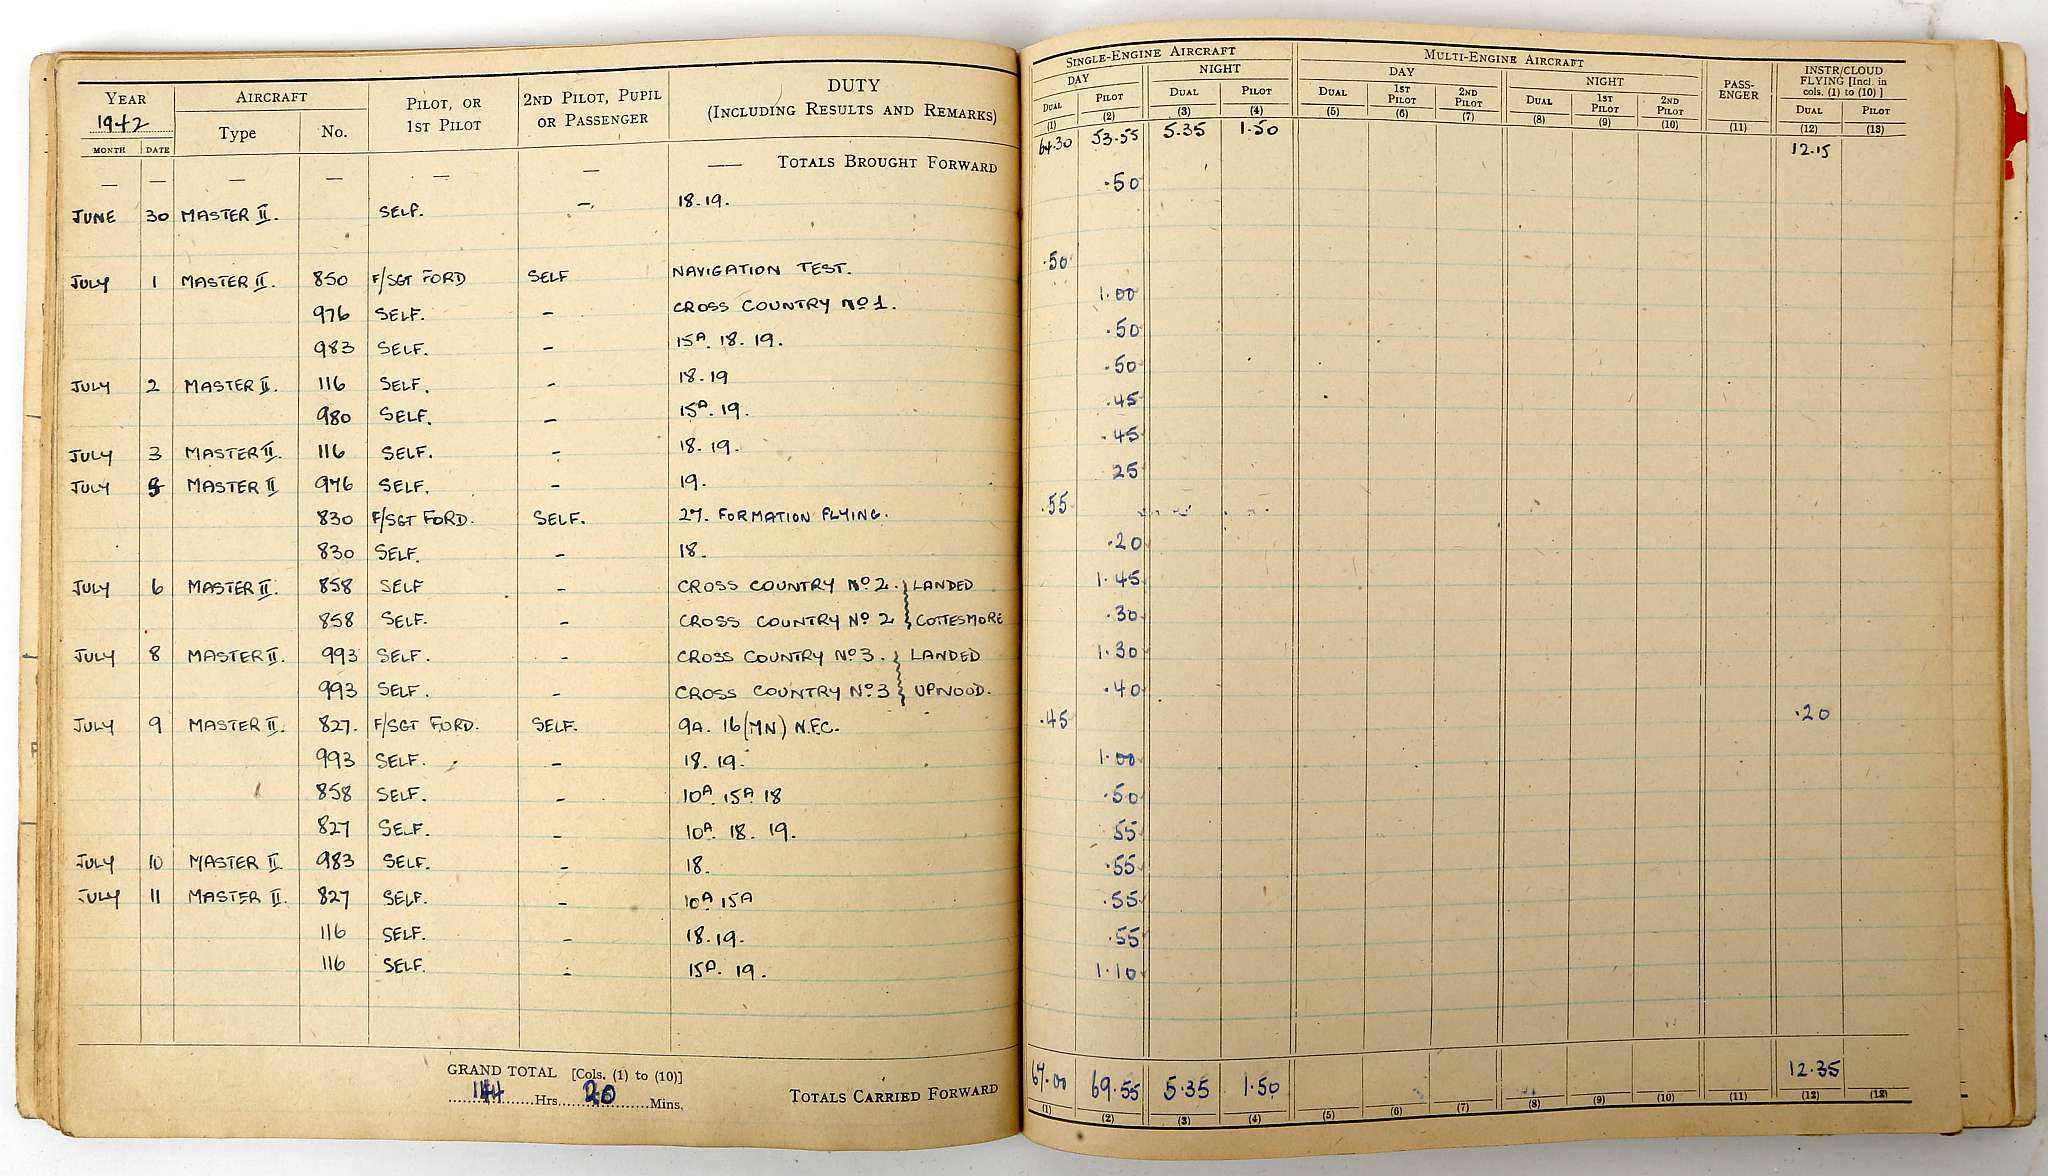 YEAR AIRCRAFT PILOT, OR 1ST PILOT 2ND PILOT, PUPIL OR PASSENGER DUTY (INCLUDING RESULTS AND REMARKS)
1942 Type No.
MONTH DATE
— — — — — — — TOTALS BROUGHT FORWARD
JUNE 30 MASTER II. SELF. — 18.19.
JULY 1 MASTER II. 850 F/SGT FORD SELF NAVIGATION TEST.
976 SELF. — CROSS COUNTRY No 1.
983 SELF. — 15A. 18. 19.
JULY 2 MASTER II. 116 SELF. — 18.19
980 SELF. — 15A. 19.
JULY 3 MASTER II. 116 SELF. — 18.19.
JULY 5 MASTER II 976 SELF. — 19.
830 F/SGT FORD. SELF. 27. FORMATION FLYING.
830 SELF. — 18.
JULY 6 MASTER II. 858 SELF — CROSS COUNTRY No 2. LANDED
858 SELF. — CROSS COUNTRY No 2 COTTESMORE
JULY 8 MASTER II. 993 SELF. — CROSS COUNTRY No 3. LANDED
993 SELF. — CROSS COUNTRY No 3 UPWOOD.
JULY 9 MASTER II. 827. F/SGT FORD. SELF. 9A. 16(MN) N.F.C.
993 SELF. — 18. 19.
858 SELF. — 10A. 15A. 18
827 SELF. — 10A. 18. 19.
JULY 10 MASTER II. 983 SELF. — 18.
JULY 11 MASTER II. 827 SELF. — 10A 15A
116 SELF. — 18.19.
116 SELF. — 15A. 19.
GRAND TOTAL [Cols. (1) to (10)]
144 Hrs. 20 Mins. TOTALS CARRIED FORWARD
SINGLE-ENGINE AIRCRAFT MULTI-ENGINE AIRCRAFT PASS-ENGER INSTR/CLOUD FLYING [Incl. in cols. (1) to (10)]
DAY NIGHT DAY NIGHT
DUAL PILOT DUAL PILOT DUAL 1ST PILOT 2ND PILOT DUAL 1ST PILOT 2ND PILOT DUAL PILOT
(1) (2) (3) (4) (5) (6) (7) (8) (9) (10) (11) (12) (13)
64.30 53.55 5.35 1.50 12.15
.50
.50
1.00
.50
.50
.45
.45
25
.55
.20
1.45
.30
1.30
.40
.45 .20
1.00
.50
55
.55
.55
.55
1.10
67.00 69.55 5.35 1.50 12.35
(1) (2) (3) (4) (5) (6) (7) (8) (9) (10) (11) (12) (13)